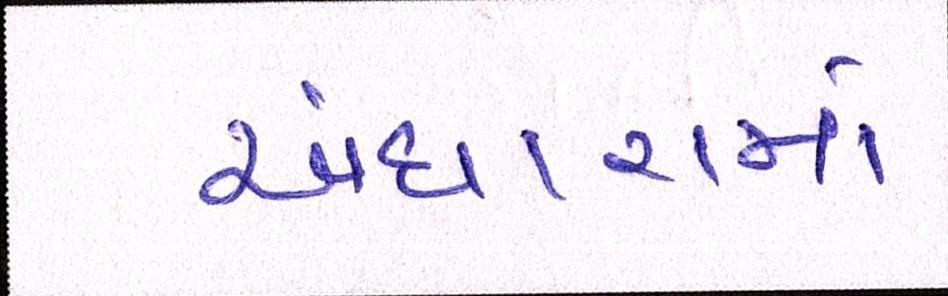 અંધારામાં